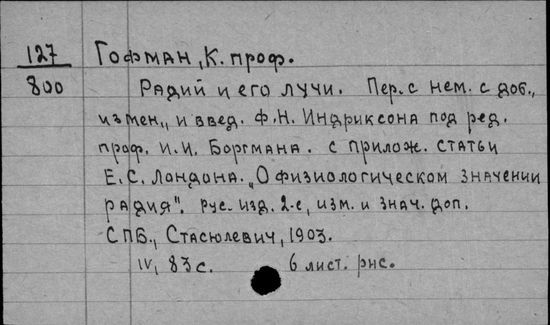 127 Гофман, К. проф.
800 Радий и его лучи. Пер. с нем. с доб.,
измен., и введ. Ф.Н. Индриксона под ред.
проф. И.И. Боргмана. с прилож. статьи
Е.С. Лондона. „О физиологическом значении
радия". Рус. изд. 2-е, изм. и знач. доп.
СПБ., Стасюлевич, 1903.
IV, 83 с. 6 лист. рис.